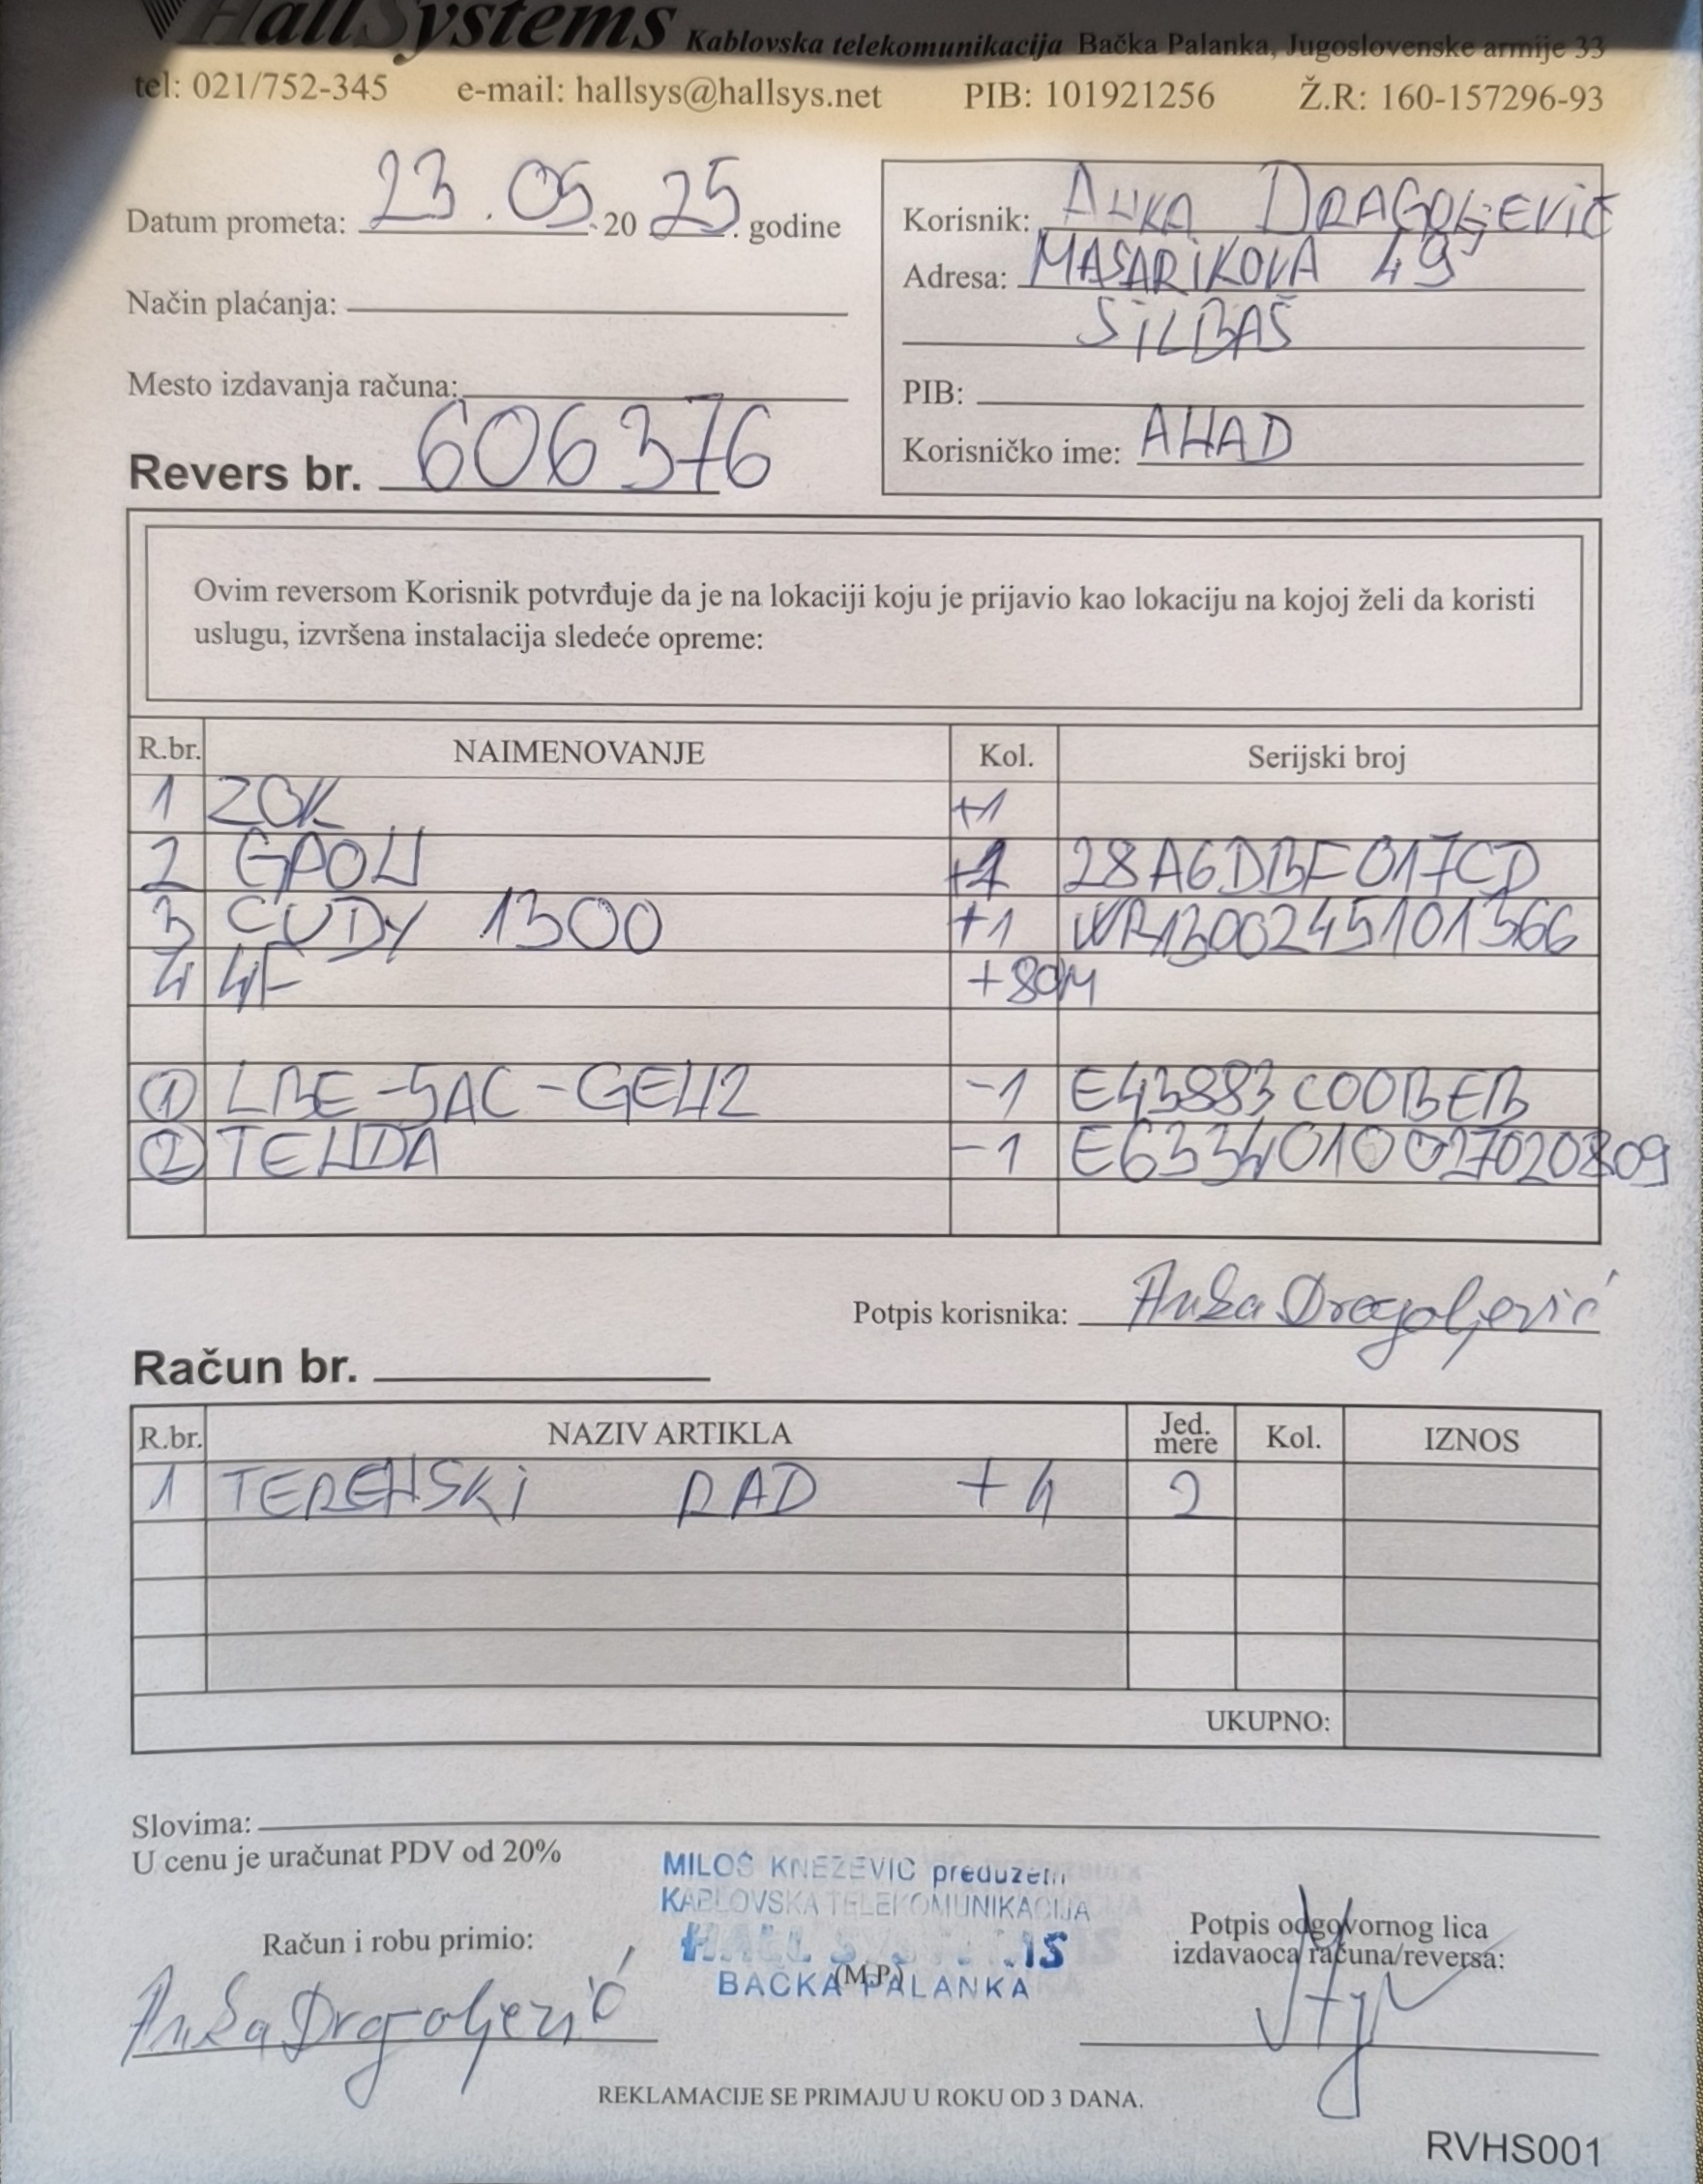 HallSystems Kablovska telekomunikacija Bačka Palanka, Jugoslovenske armije 33
tel: 021/752-345 e-mail: hallsys@hallsys.net PIB: 101921256 Ž.R: 160-157296-93
Datum prometa: 23.05.2025. godine
Način plaćanja:
Mesto izdavanja računa:
Revers br. 606376
Korisnik: ANKA DRAGOLJEVIĆ
Adresa: MASARIKOVA 49
SILBAŠ
PIB:
Korisničko ime: ANAD
Ovim reversom Korisnik potvrđuje da je na lokaciji koju je prijavio kao lokaciju na kojoj želi da koristi
uslugu, izvršena instalacija sledeće opreme:
R.br. NAIMENOVANJE Kol. Serijski broj
1 ZOK +1
2 GPON +1 28A6DBF017CD
3 CUDY 1300 +1 WR1300245101366
4 4F +80M
1 LBE-5AC-GEN2 -1 E43883C00BEB
2 TENDA -1 E6334010027020809
Potpis korisnika: Anka Dragoljević
Račun br.
R.br. NAZIV ARTIKLA Jed. mere Kol. IZNOS
1 TERENSKI RAD +4 2
UKUPNO:
Slovima:
U cenu je uračunat PDV od 20%
MILOŠ KNEŽEVIĆ preduzetn
KABLOVSKA TELEKOMUNIKACIJA
HALL SYSTEMS
(M.P.)
BAČKA PALANKA
Račun i robu primio:
Anka Dragoljević
Potpis odgovornog lica
izdavaoca računa/reversa:
REKLAMACIJE SE PRIMAJU U ROKU OD 3 DANA.
RVHS001